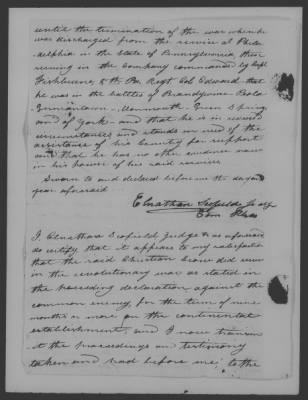 until the termination of the war when he
was discharged from the service at Phila-
delphia in the State of Pennsylvania then
serving in the Company commanded by Capt
5th Pa Regt Col that
he was in the battles of Brandywine Peola
Monmouth Green Spring
and of York and that he is in reduced
circumstances and stands in need of the
assistance of his country for support
and that he has no other evidence now
in his power of his said services
Sworn to and declared before me the day and
year aforesaid
Elnathan Scofield
I Elnathan Scofield Judge &c as aforesaid
do certify that it appears to my satisfaction
that the said Christian did serve
in the revolutionary war as stated in
the preceding declaration against the
common enemy for the term of nine
months or more on the continental
establishment, and I now transmit
the proceedings and testimony
taken and had before me, to the